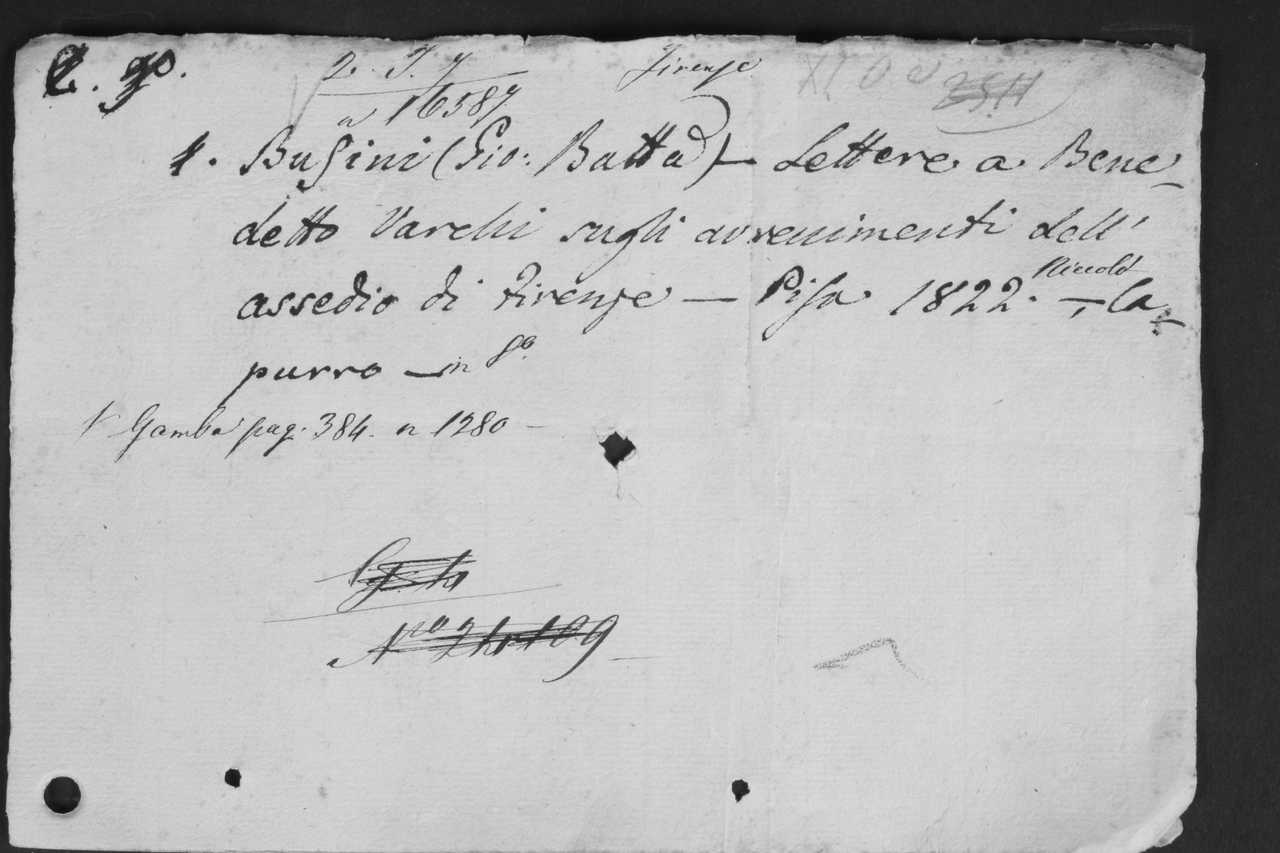 2. T. 7
Firenze
n 16587
1. Busini (Gio: Batta) — Lettere a Bene-
detto Varchi sugli avvenimenti dell'
assedio di Firenze — Pisa 1822. — Niccolò Ca-
purro — in 8º.
V. Gamba pag. 384. n 1280 —